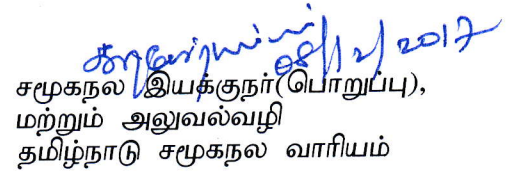 08/12/2017
சமூகநல இயக்குநர்(பொறுப்பு),
மற்றும் அலுவல்வழி
தமிழ்நாடு சமூகநல வாரியம்